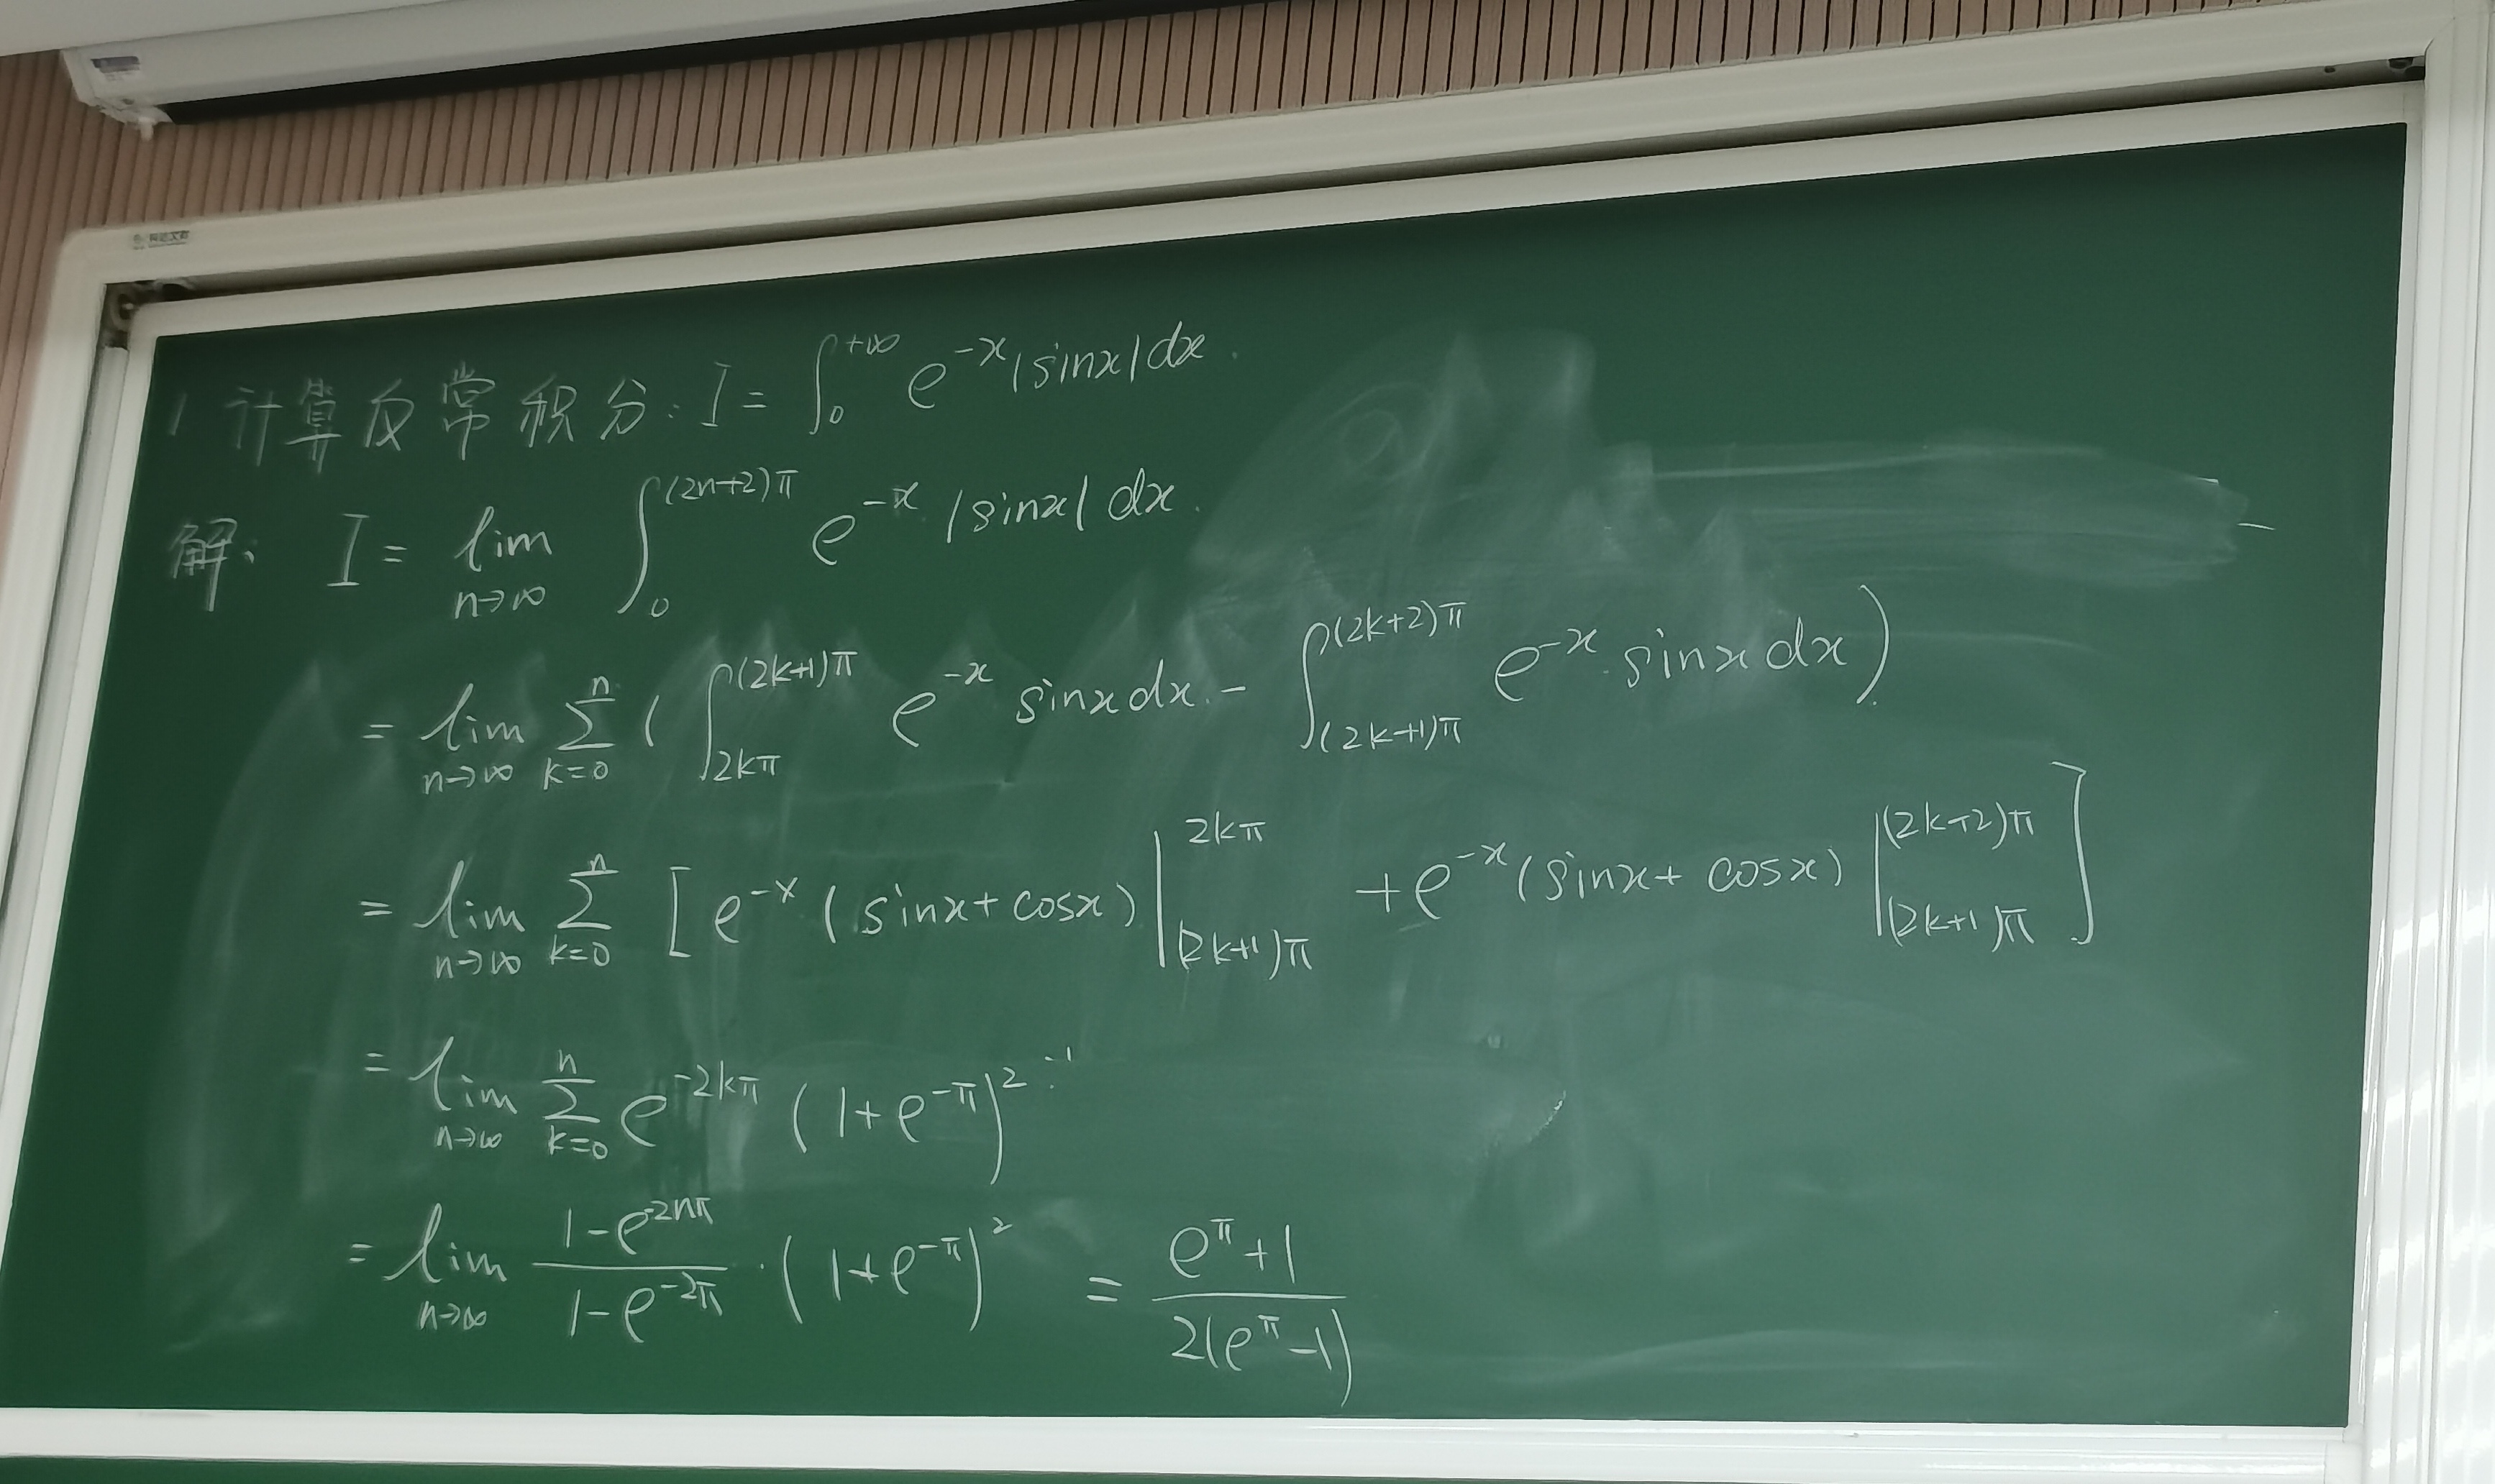 1 计算反常积分: I = ∫₀^{+∞} e^{-x}|sinx|dx.
解: I = lim_{n→∞} ∫₀^{(2n+2)π} e^{-x} |sinx| dx.
= lim_{n→∞} ∑_{k=0}^{n} ( ∫_{2kπ}^{(2k+1)π} e^{-x} sinx dx - ∫_{(2k+1)π}^{(2k+2)π} e^{-x} sinx dx )
= lim_{n→∞} ∑_{k=0}^{n} [ e^{-x} (sinx + cosx) |_{(2k+1)π}^{2kπ} + e^{-x} (sinx + cosx) |_{(2k+1)π}^{(2k+2)π} ]
= lim_{n→∞} ∑_{k=0}^{n} e^{-2kπ} (1+e^{-π})^2
= lim_{n→∞} \frac{1-e^{-2nπ}}{1-e^{-2π}} · (1+e^{-π})^2 = \frac{e^π+1}{2(e^π-1)}